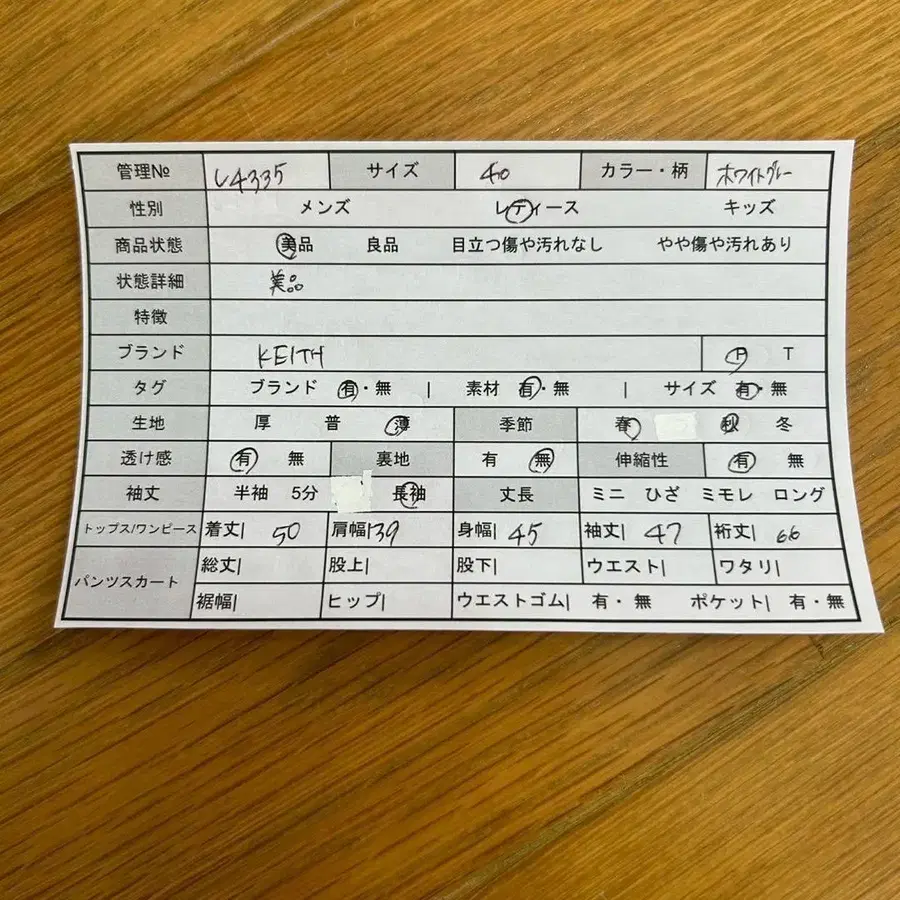 管理№ L4335 サイズ 40 カラー・柄 ホワイトグレー
性別 メンズ レディース キッズ
商品状態 美品 良品 目立つ傷や汚れなし やや傷や汚れあり
状態詳細 美品
特徴
ブランド KEITH P T
タグ ブランド 有・無 | 素材 有・無 | サイズ 有・無
生地 厚 普 薄 季節 春 秋 冬
透け感 有 無 裏地 有 無 伸縮性 有 無
袖丈 半袖 5分 長袖 丈長 ミニ ひざ ミモレ ロング
トップス/ワンピース 着丈| 50 肩幅| 39 身幅| 45 袖丈| 47 裄丈| 66
パンツスカート 総丈| 股上| 股下| ウエスト| ワタリ|
裾幅| ヒップ| ウエストゴム| 有・無 ポケット| 有・無